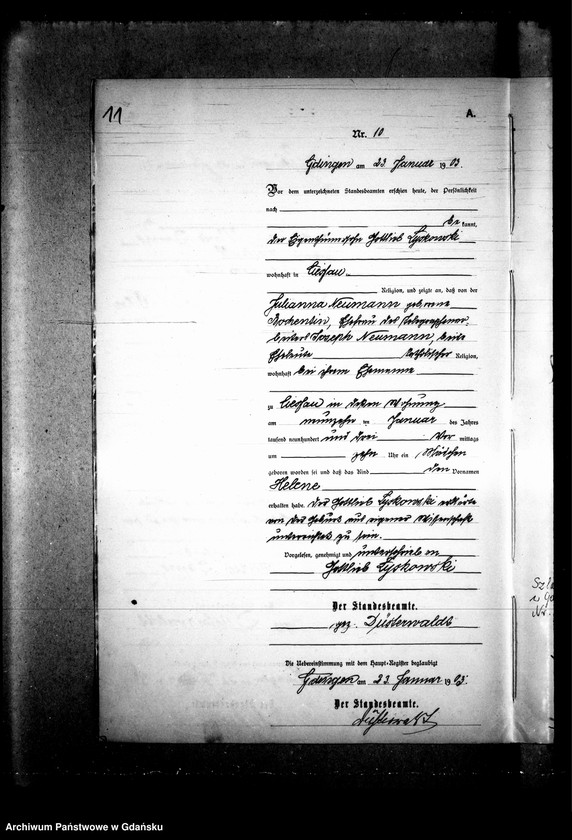 11
A.
Nr. 10
Gdingen am 23. Januar 1903.
Vor dem unterzeichneten Standesbeamten erschien heute, der Persönlichkeit
nach
be kannt,
der Eigenthümer Gottlieb Lyskowski
wohnhaft in Ciessau
Religion, und zeigte an, daß von der
Julianna Neumann geborene
Ehefrau des
Joseph Neumann, beide
Eheleute katholischer Religion,
wohnhaft bei ihrem Ehemanne
zu Ciessau in dessen Wohnung
am neunzehn ten Januar des Jahres
tausend neunhundert und drei Vor mittags
um zehn Uhr ein Mädchen
geboren worden sei und daß das Kind den Vornamen
Helene
erhalten habe. Der Gottlieb Lyskowski erklärte
von der Geburt aus eigener Wissenschaft
unterrichtet zu sein.
Vorgelesen, genehmigt und unterschrieben
Gottlieb Lyskowski
Der Standesbeamte.
gez. Düsterwald
Die Uebereinstimmung mit dem Haupt-Register beglaubigt
Gdingen am 23. Januar 1903.
Der Standesbeamte.
Archiwum Państwowe w Gdańsku